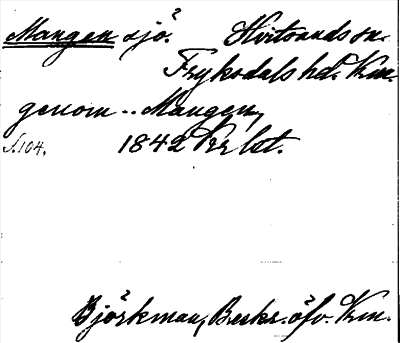 Mangen sjö. Hvitsands sn.
Fryksdals hd. Krm.
genom -- Mangen,
S. 104. 1842 Kr lbt.
Björkman, Beskr. öfv. Krm.